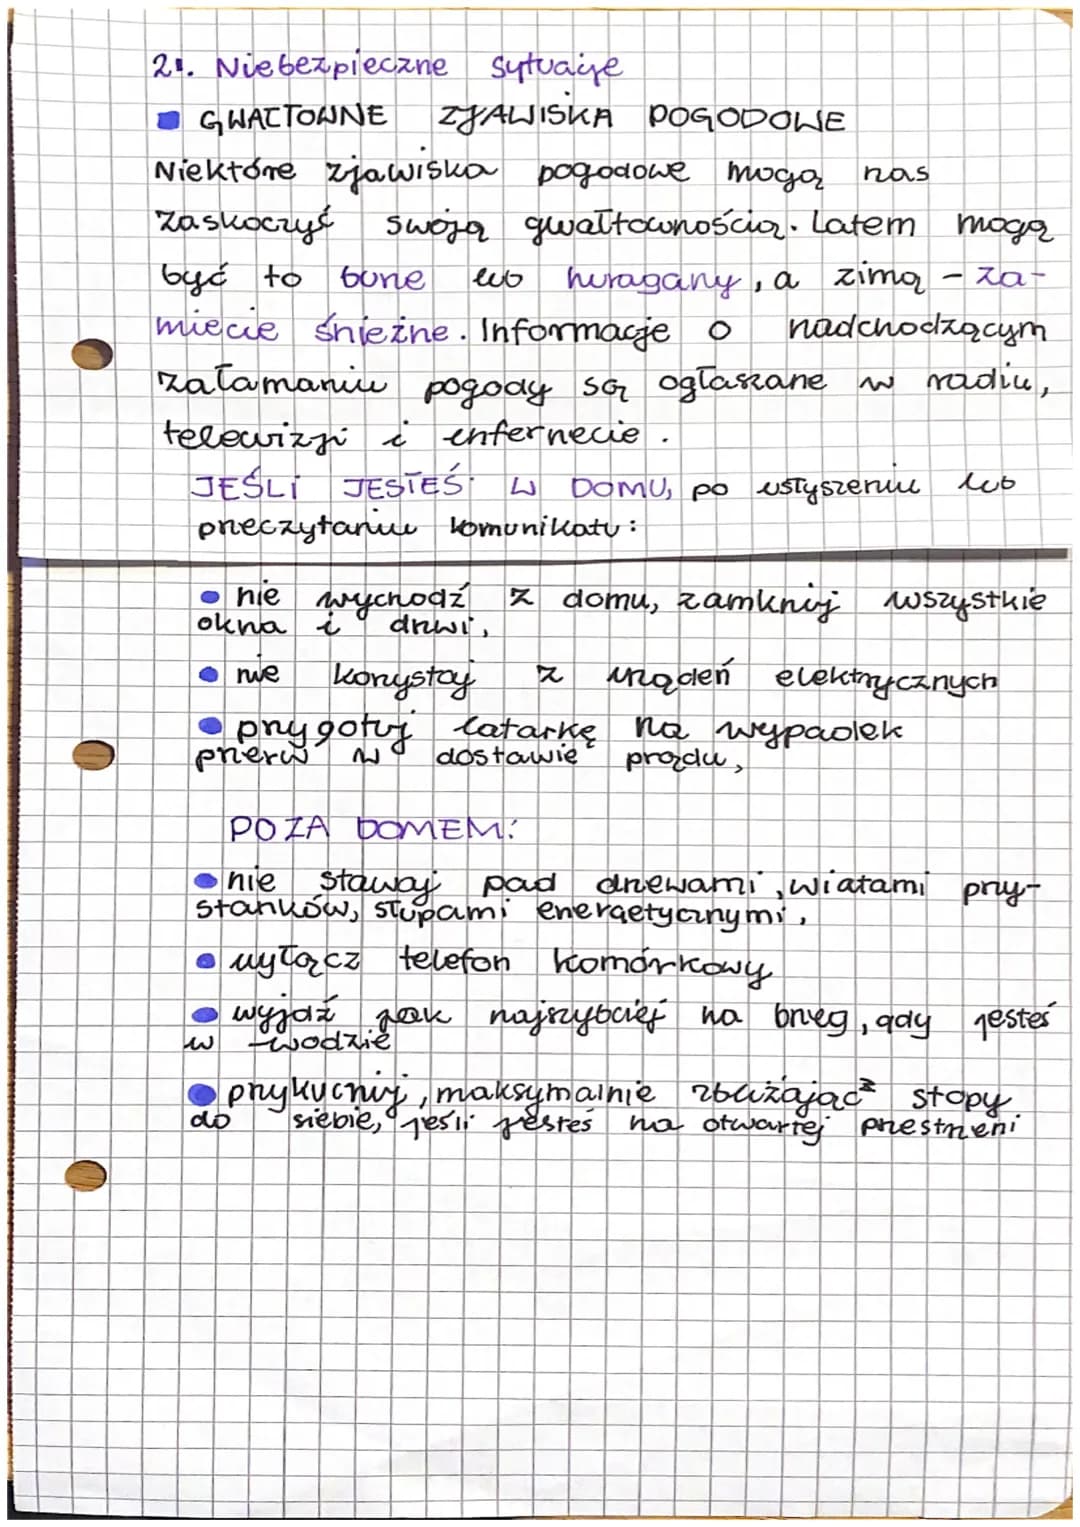 21. Niebezpieczne sytuacje
GWAŁTOWNE ZJAWISKA POGODOWE
Niektóre zjawiska pogodowe mogą nas
zaskoczyć swoją gwałtownością. Latem mogą
być to burze lub huragany, a zimą - za-
miecie śnieżne. Informacje o nadchodzącym
załamaniu pogody są ogłaszane w radiu,
telewizji i internecie.
JEŚLI JESTEŚ W DOMU, po usłyszeniu lub
przeczytaniu komunikatu:
• nie wychodź z domu, zamknij wszystkie
okna i drzwi,
• nie korzystaj z urządeń elektrycznych
• przygotuj latarkę na wypadek
przerw w dostawie prądu,
POZA DOMEM:
• nie stawaj pad drzewami, wiatami przy-
stanków, słupami energetycznymi,
• wyłącz telefon komórkowy
• wyjdź jak najszybciej na brzeg, gdy jesteś
w wodzie
• przykucnij, maksymalnie zbliżając stopy
do siebie, jeśli jesteś na otwartej przestrzeni